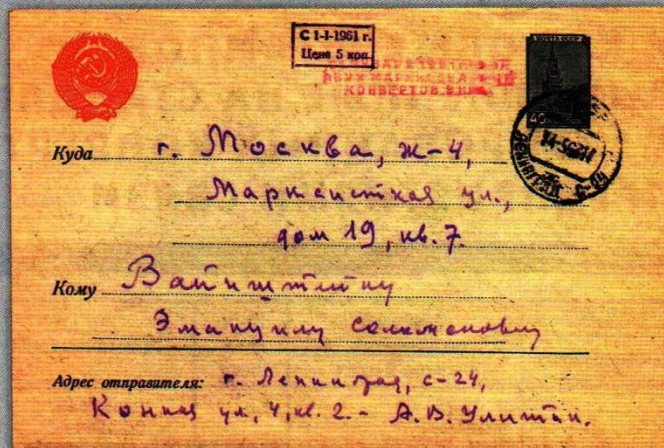 С 1-I-1961 г.
Цена 5 коп.
ПОЧТА СССР
40
КОНВЕРТОВ
Куда г. Москва, Ж-4,
Марксистская ул.,
дом 19, кв. 7.
Кому Вайнштейну
Эмануилу Соломоновичу
Адрес отправителя: г. Ленинград, С-24,
Конная ул., 4, кв. 2. - А.В. Улитин.